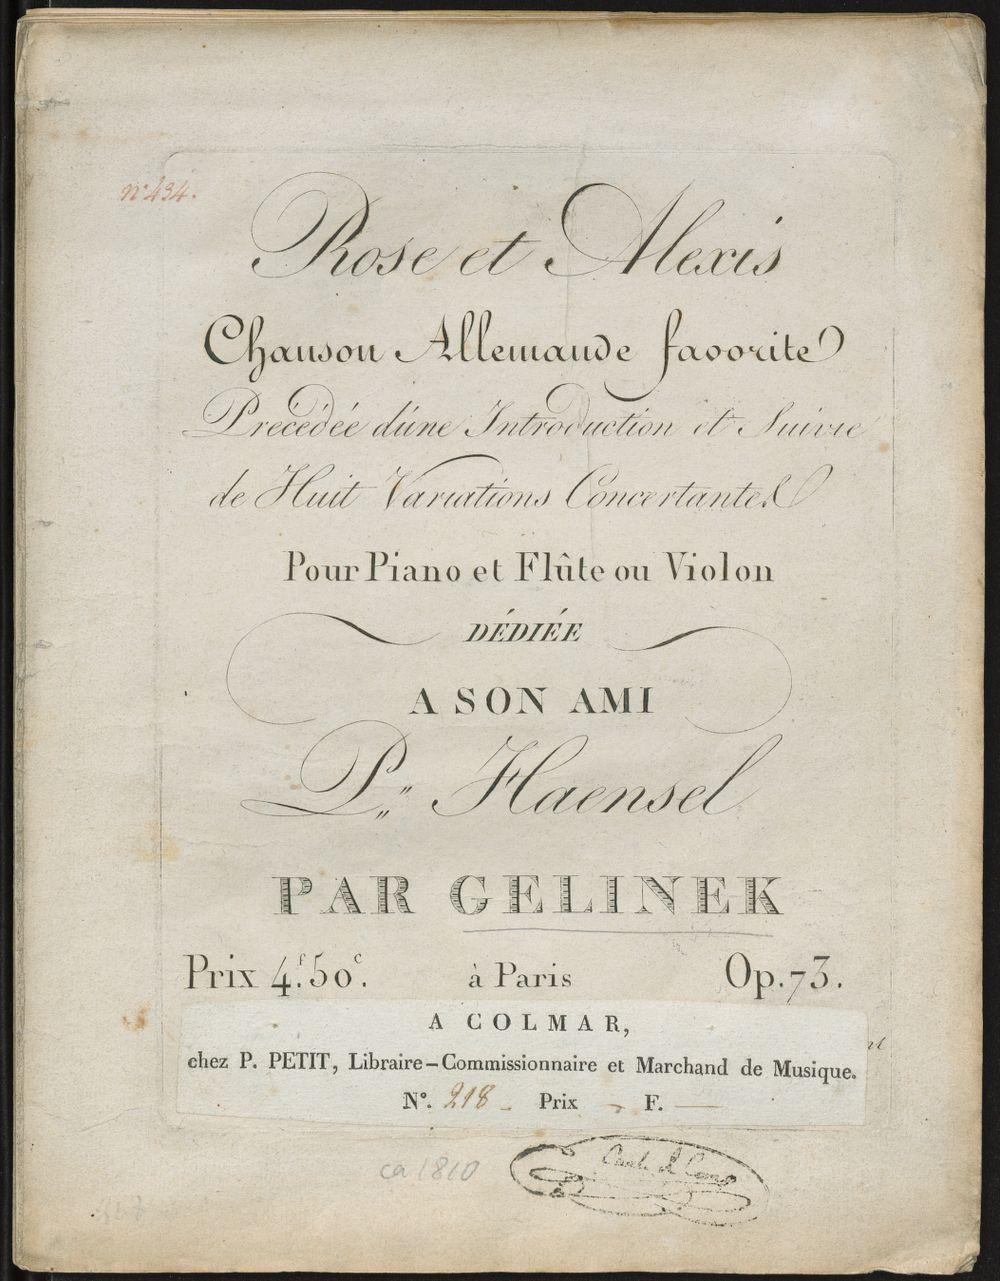 n.º 434.
Rose et Alexis
Chanson Allemande favorite
Précédée d'une Introduction et Suivie
de Huit Variations Concertantes
Pour Piano et Flûte ou Violon
DÉDIÉE
A SON AMI
P. Haensel
PAR GELINEK
Prix 4.f 50.c
à Paris
Op. 73.
A COLMAR,
chez P. PETIT, Libraire-Commissionnaire et Marchand de Musique.
Nº. 218 Prix F.
ca 1810